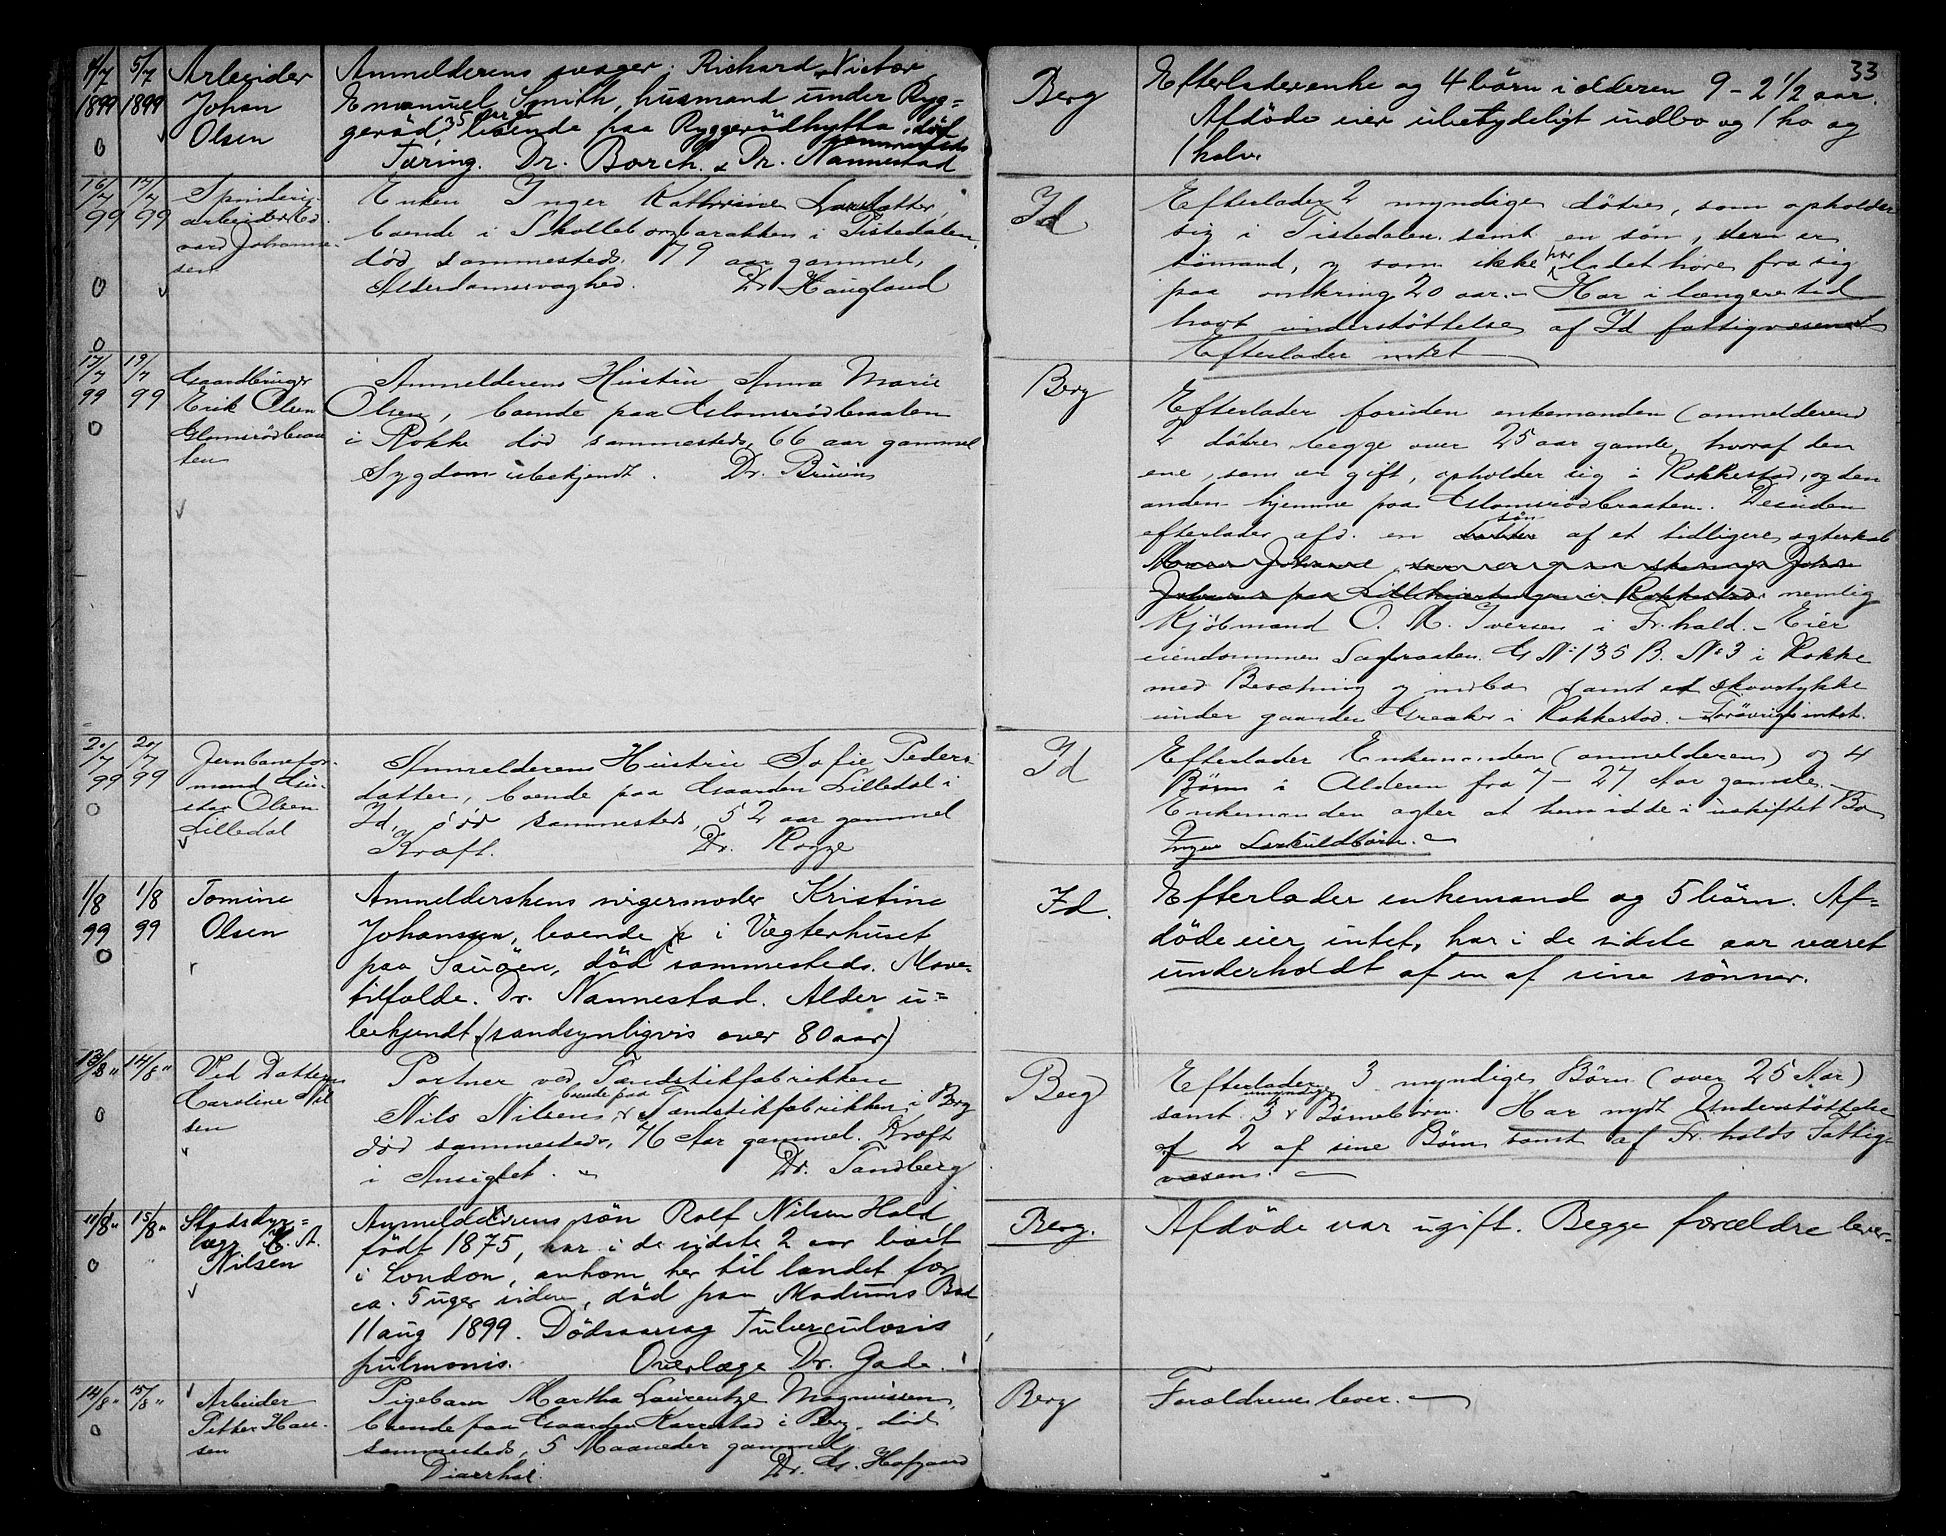 33
4/7 1899
5/7 1899
Arbeider
Johan
Olsen
Anmelderens svager Richard Victor
Emanuel Smith, husmand under Ryg=
geröd, 35 aar, boende paa Ryggerödhytta, död
sammesteds
Tæring. Dr. Borch & Dr. Nannestad
Berg
Efterlader enke og 4 börn i alderen 9 - 2 1/2 aar.
Afdöde eier ubetydeligt indbo og 1 ko og
1 kalv.
16/7 99
17/7 99
Spinderi-
arbeider Ed
vard Johanne-
sen
Enken Inger Kathrine Larsdatter,
boende i Skolleborgbarakken i Tistedalen
död sammesteds 79 aar gammel,
Alderdomssvaghed. Dr Haugland
Id
Efterlader 2 myndige döttre, som opholder
sig i Tistedalen samt en sön, dern er
sömand, og som ikke har ladet höre fra sig
paa omkring 20 aar. - Har i længere tid
havt understöttelse af Id fattigvæsen
Efterlader intet
17/7 99
19/7 99
Gaardbruger
Erik Olsen
Glomsrödbraa
ten
Anmelderens Hustru Anna Marie
Olsen, boende paa Glomsrödbraaten
i Rokke död sammesteds, 66 aar gammel
Sygdom ubekjendt. Dr. Bruuns
Berg
Efterlader foruden enkemanden (anmelderen)
2 döttre begge over 25 aar gamle, hvoraf den
ene, som er gift, opholder sig i Rakkestad, og den
anden hjemme paa Glomsrödbraaten. Desuden
efterlader afd. en sön af et tidligere ægteskab
nemlig
Kjöbmand O. M. Iversen i Fr.hald. - Eier
eiendommen Sagbraaten G No 135 B. No 3 i Rokke
med Besætning og indbo samt et skovstykke
under gaarden Greaker i Rakkestad. - Forövrigt intet.
20/7 99
20/7 99
Jernbanefor-
mand Gu-
stav Olsen
Lilledal
Anmelderens Hustru Sofie Peders
datter, boende paa Gaarden Lilledal i
Id, död sammesteds, 52 aar gammel
Kræft. Dr. Rogge
Id
Efterlader Enkemanden (anmelderen) og 4
Börn i Alderen fra 7 - 27 Aar gamle. -
Enkemanden agter at hensidde i uskiftet Bo
Ingen Særkuldbörn. -
1/8 99
1/8 99
Tomine
Olsen
Anmelderskens svigermoder Kristine
Johansen, boende i Vægterhuset
paa Sauöen, död sammesteds. Mave-
tilfælde. Dr. Nannestad. Alder u=
bekjendt (sandsynligvis over 80 aar)
Id.
Efterlader enkemand og 5 börn. Af=
döde eier intet, har i de sidste aar været
underholdt af en af sine sönner.
13/8 "
14/8 "
Ved Datteren
Caroline Nil
sen
Portner ved Tændstikfabrikken
Nils Nilsen, boende paa Tændstikfabrikken i Berg
död sammesteds, 76 Aar gammel. Kræft
i Ansigtet. - Dr. Tandberg
Berg
Efterlader 3 myndige Börn (over 25 Aar)
samt 3 umyndige Börnebörn. Har nydt Understöttelse
af 2 af sine Börn samt af Fr.halds Fattig-
væsen. -
11/8 "
15/8 "
Stadsdyr=
læge A.
Nilsen
Anmelderens sön Rolf Nilsen Hald,
födt 1875, har i de sidste 2 aar boet
i London, ankom her til landet for
ca. 5 uger siden, död paa Modums Bad
11 aug 1899. Dödsaarsag Tuberculosis
pulmonis. Overlæge Dr. Gade.
Berg.
Afdöde var ugift. Begge forældre lever.
14/8 "
15/8 "
Arbeider
Petter Han-
sen
Pigebarn Martha Laurentze Magnussen,
boende paa Gaarden Karrestad i Berg, död
sammesteds, 5 Maaneder gammel.
Diarrhoe. Dr. G. Hofgaard
Berg
Forældrene lever. -